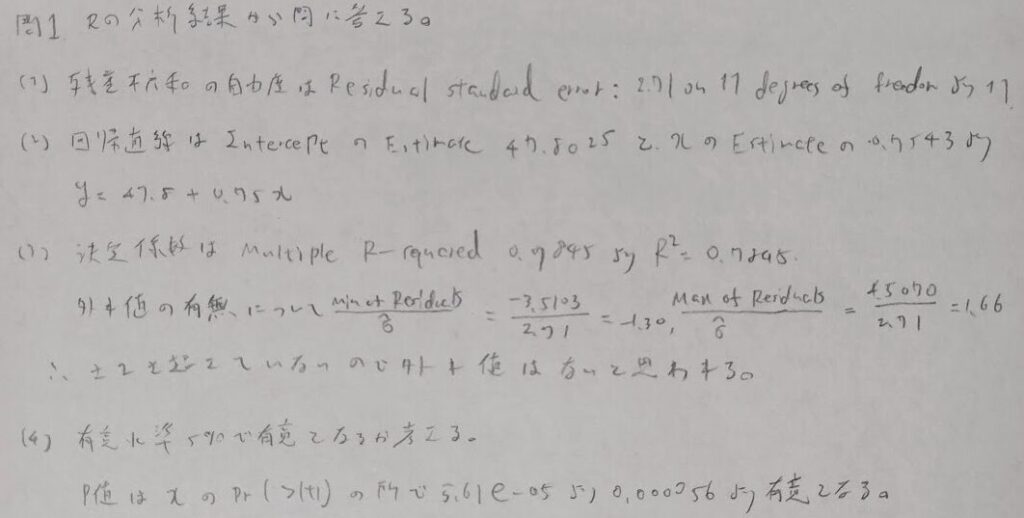 問1 Rの分析結果から問に答える。
(1) 残差平方和の自由度は Residual standard error: 2.71 on 17 degrees of freedom より 17
(2) 回帰直線は Intercept の Estimate 47.8025 と x の Estimate の 0.7543 より
y = 47.8 + 0.75x
(3) 決定係数は Multiple R-squared より R² =
外れ値の有無について Min of Residuals / σ̂ = -3.5103 / 2.71 = -1.30, Max of Residuals / σ̂ = 4.5070 / 2.71 = 1.66
∴ ±2を超えていないので外れ値はないと思われる。
(4) 有意水準5%で有意となるか考える。
P値は x の Pr(>|t|) の所で 5.61e-05 より 有意となる。